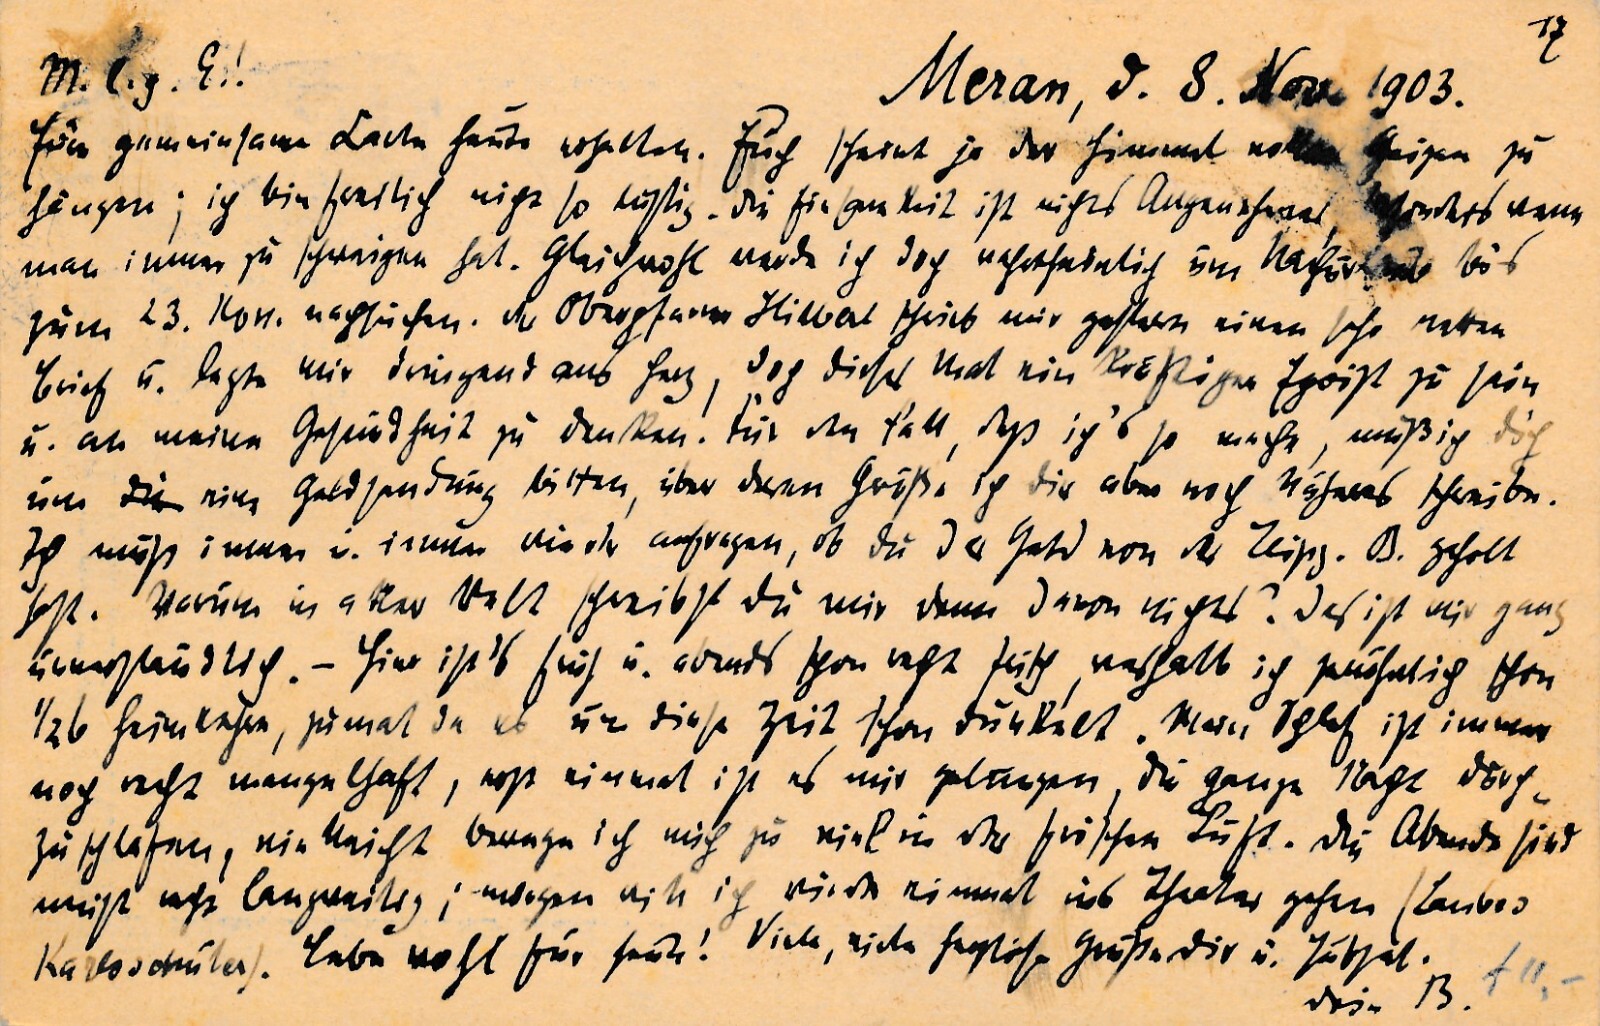 17
M. l. g. E.!
Meran, d. 8. Nov. 1903.
Eure gemeinsame Karte heute erhalten. Euch scheint ja der Himmel voller Geigen zu
hängen; ich bin freilich nicht so lustig. Die Einsamkeit ist nichts Angenehmes, besonders wenn
man immer zu schweigen hat. Gleichwohl werde ich doch wahrscheinlich um Nachurlaub bis
zum 23. Nov. nachsuchen. Der Oberpfarrer Hilbert schrieb mir gestern einen sehr netten
Brief u. legte mir dringend ans Herz, doch dieses Mal ein kräftiger Egoist zu sein
u. an meine Gesundheit zu denken. Für den Fall, daß ich's so mache, muß ich dich
um eine Geldsendung bitten, über deren Größe ich dir aber noch Näheres schreibe.
Ich muß immer u. immer wieder anfragen, ob du das Geld von der Leipz. B. geholt
hast. Warum in aller Welt schreibst du mir denn davon nichts? Das ist mir ganz
unverständlich. – Hier ist's früh u. abends schon recht frisch, weshalb ich gewöhnlich schon
1/26 heimkehre, zumal da es um diese Zeit schon dunkelt. Mein Schlaf ist immer
noch recht mangelhaft, erst einmal ist es mir gelungen, die ganze Nacht durch-
zuschlafen, vielleicht bewege ich mich zu viel in der frischen Luft. Die Abende sind
meist recht langweilig; morgen will ich wieder einmal ins Theater gehen (Laubes
Karlsschüler). Lebe wohl für heute! Viele, viele herzliche Grüße dir u.
dein B.